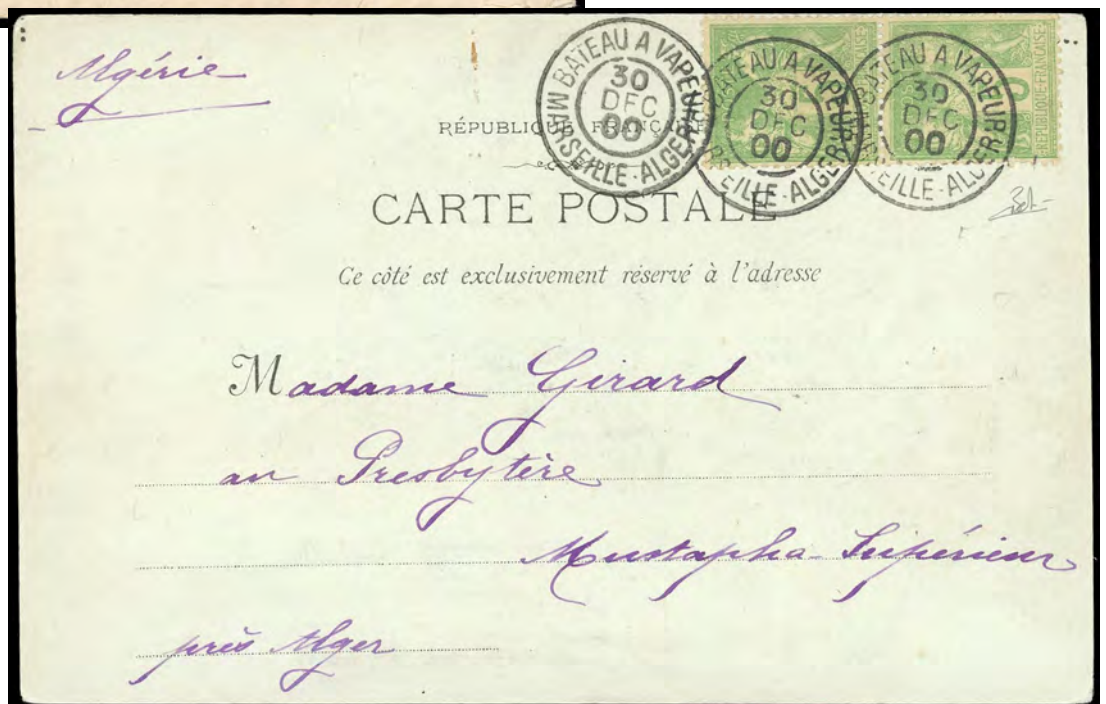 Algérie
BATEAU A VAPEUR
30
DEC
00
MARSEILLE-ALGER
BATEAU A VAPEUR
30
DEC
00
SEILLE-ALGER
BATEAU A VAPEUR
30
DEC
00
SEILLE-ALGER
REPUBLIQUE-FRANÇAISE
RÉPUBLIQUE FRANÇAISE
CARTE POSTALE
Ce côté est exclusivement réservé à l'adresse
Madame Girard
au Presbytère
Mustapha-Supérieur
près Alger